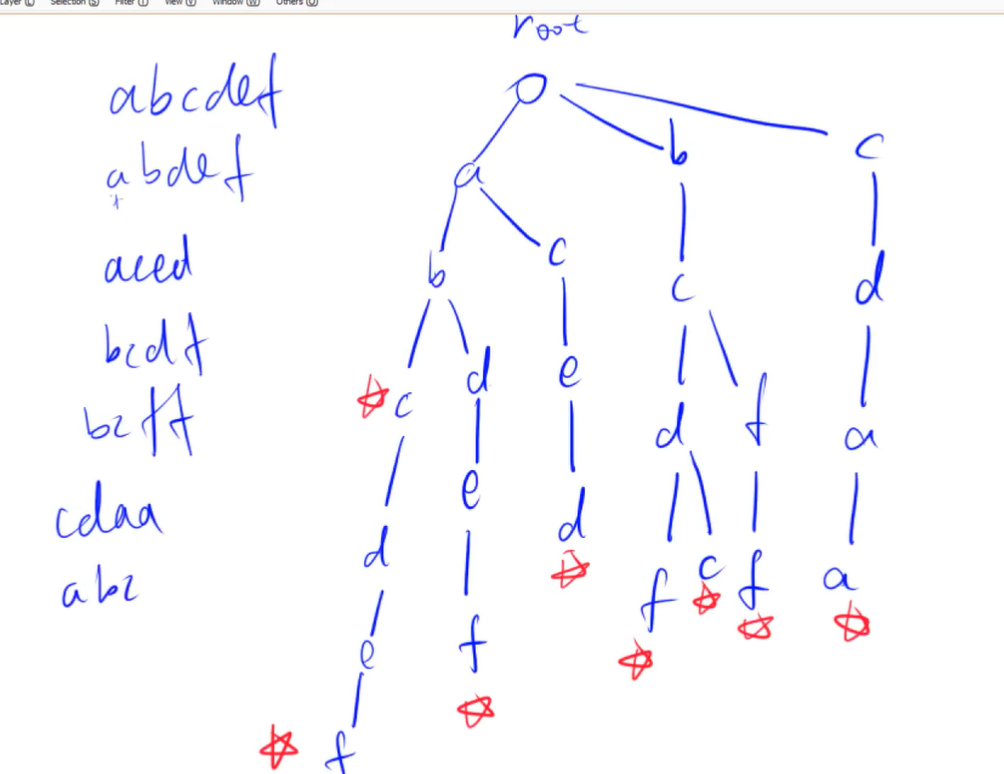 Layer (L) Selection (S) Filter (T) View (V) Window (W) Others (O)
root
abcdef
abdef
aced
bcdf
bcff
cdaa
abc
a
b
c
b
c
c
d
d
e
d
e
f
e
d
f
c
d
f
f
c
f
a
a